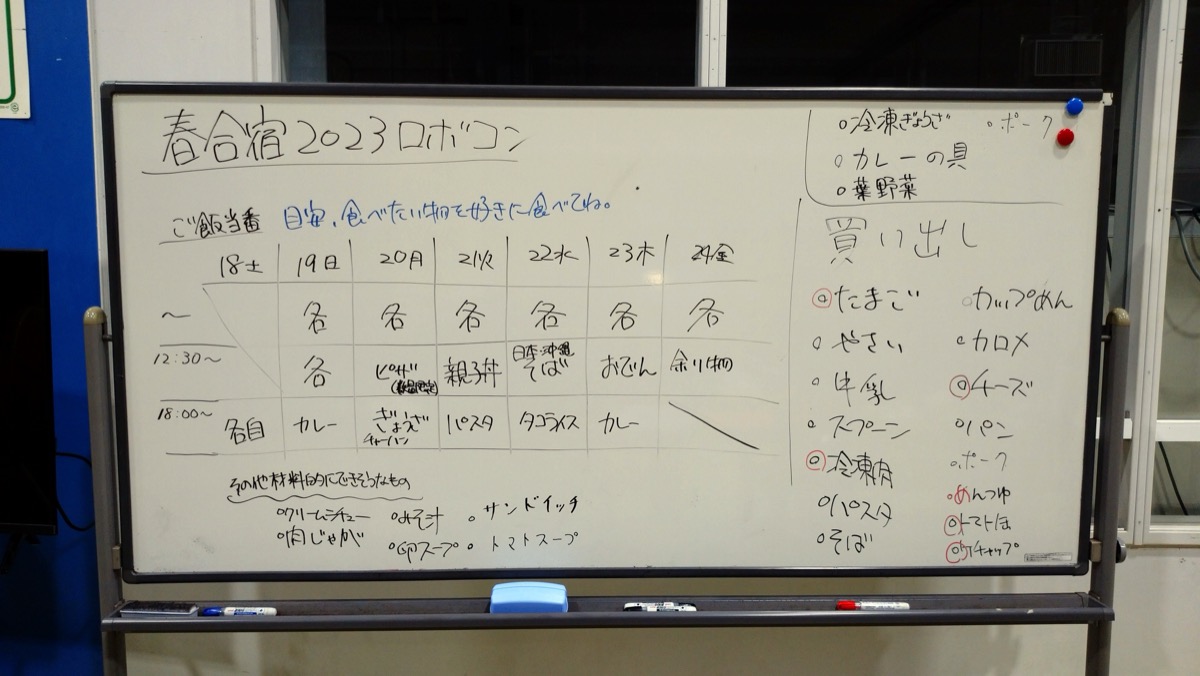 春合宿2023ロボコン
ご飯当番 目安、食べたい物を好きに食べてね。
18土 19日 20月 21火 22水 23木 24金
〜 各 各 各 各 各 各
12:30〜 各 ピザ 親子丼 日本・沖縄そば おでん 余り物
18:00〜 各自 カレー ぎょうざ チャーハン パスタ タコライス カレー
その他材料的にできそうなもの
○クリームシチュー ○みそ汁 ○サンドイッチ
○肉じゃが ○卵スープ ○トマトスープ
○冷凍ぎょうざ ○ポーク
○カレーの具
○葉野菜
買い出し
○たまご ○カップめん
○やさい ○カロメ
○牛乳 ◎チーズ
○スプーン ○パン
○冷凍肉 ○ポーク
○パスタ ○めんつゆ
○そば ○トマト缶
○ケチャップ